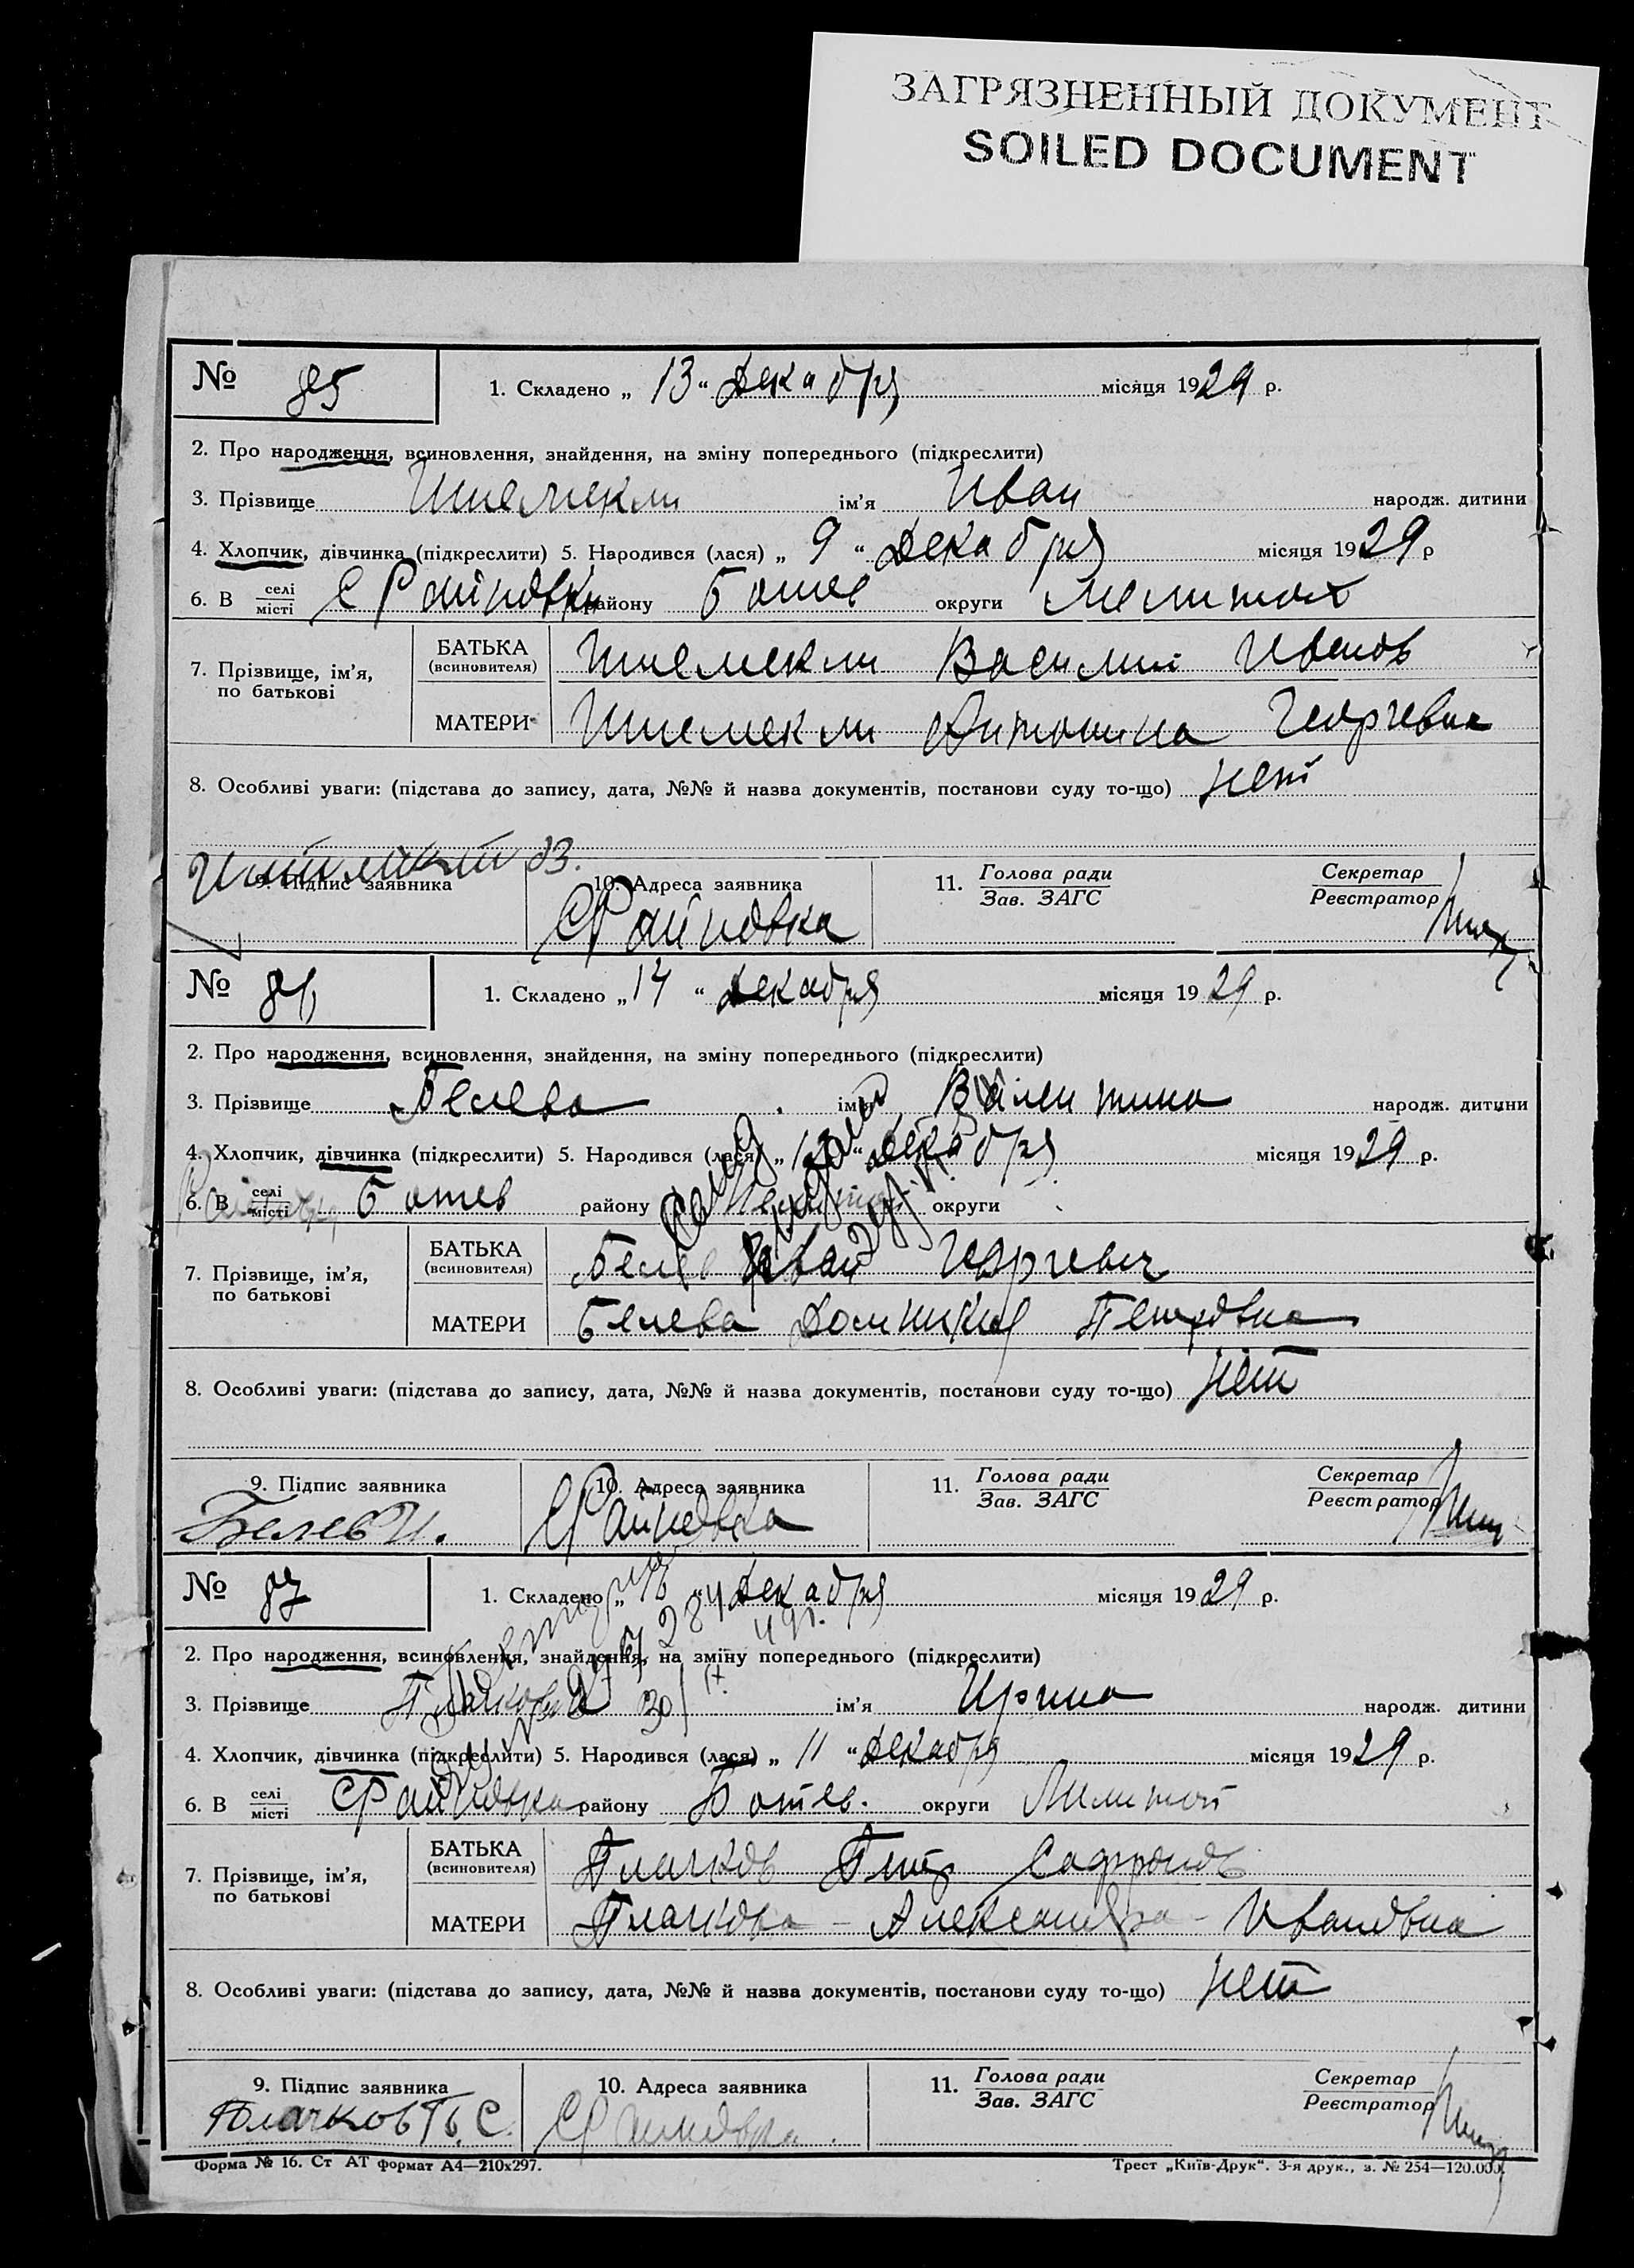 ЗАГРЯЗНЕННЫЙ ДОКУМЕНТ
SOILED DOCUMENT
№ 85 1. Складено „ 13 “ Декабря місяця 1929 р.
2. Про народження, всиновлення, знайдення, на зміну попереднього (підкреслити)
3. Прізвище ім'я Иван народж. дитини
4. Хлопчик, дівчинка (підкреслити) 5. Народився (лася) „ 9 “ Декабря місяця 1929 р
6. В селі місті С Райновки району Ботев округи Мелитоп
7. Прізвище, ім'я, по батькові
БАТЬКА (всиновителя) Василий Иванов
МАТЕРИ Антонина Георгевна
8. Особливі уваги: (підстава до запису, дата, №№ й назва документів, постанови суду то-що) нет
9. Підпис заявника 10. Адреса заявника 11. Голова ради Зав. ЗАГС Секретар Реєстратор
С Райновка
№ 1. Складено „ 14 “ Декабря місяця 1929 р.
2. Про народження, всиновлення, знайдення, на зміну попереднього (підкреслити)
3. Прізвище Белева ім'я Валентина народж. дитини
4. Хлопчик, дівчинка (підкреслити) 5. Народився (лася) „ “ Декабря місяця 1929 р.
6. В селі місті Ботев району округи
7. Прізвище, ім'я, по батькові
БАТЬКА (всиновителя) Белев Иван Георгевич
МАТЕРИ Белева Домникия Петровна
8. Особливі уваги: (підстава до запису, дата, №№ й назва документів, постанови суду то-що) нет
9. Підпис заявника 10. Адреса заявника 11. Голова ради Зав. ЗАГС Секретар Реєстратор
Белев И. С Райновка
№ 87 1. Складено „ “ Декабря місяця 1929 р.
2. Про народження, всиновлення, знайдення, на зміну попереднього (підкреслити)
3. Прізвище Плачкова ім'я Ирина народж. дитини
4. Хлопчик, дівчинка (підкреслити) 5. Народився (лася) „ 11 “ Декабря місяця 1929 р.
6. В селі місті С Райновка району Ботев. округи
7. Прізвище, ім'я, по батькові
БАТЬКА (всиновителя) Плачков Петр Сафронов
МАТЕРИ Плачкова - Александра - Ивановна
8. Особливі уваги: (підстава до запису, дата, №№ й назва документів, постанови суду то-що) нет
9. Підпис заявника 10. Адреса заявника 11. Голова ради Зав. ЗАГС Секретар Реєстратор
Плачков П. С. С Райновка.
Форма № 16. Ст АТ формат А4—210х297. Трест „Київ-Друк“. 3-я друк., з. № 254—120.000.